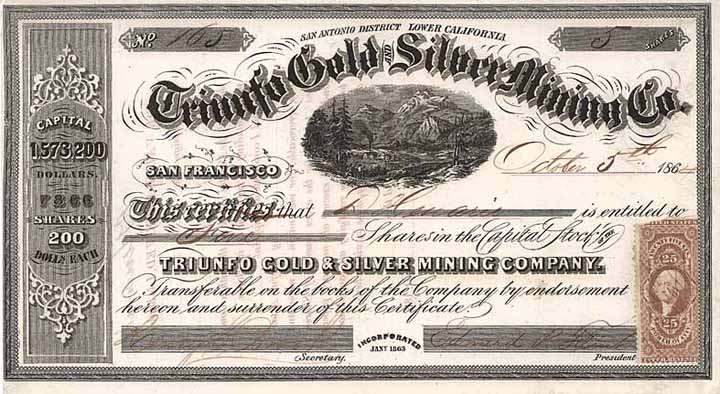 SAN ANTONIO DISTRICT LOWER CALIFORNIA
No. 165
5 SHARES
Triunfo Gold AND Silver Mining Co.
CAPITAL
1,573,200
DOLLARS.
7866
SHARES
200
DOLLS EACH
SAN FRANCISCO
October 5th 186
This certifies that
is entitled to
Five Shares in the Capital Stock of
TRIUNFO GOLD & SILVER MINING COMPANY.
Transferable on the books of the Company by endorsement
hereon and surrender of this Certificate.
INCORPORATED
JANY 1863
Secretary.
President
25
25